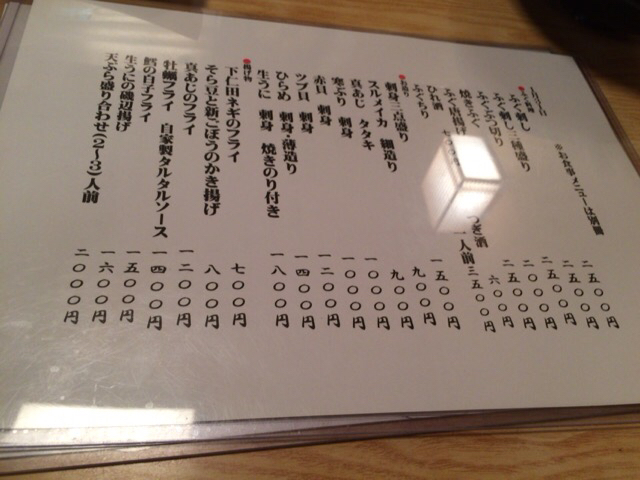 ※お食事メニューは別冊
ふぐ刺し 二五〇〇円
ふぐ刺し三種盛り 二五〇〇円
ふぐぶつ切り 二五〇〇円
焼きふぐ 二五〇〇円
ふぐ唐揚げ 二五〇〇円
ひれ酒 つぎ酒 六〇〇円
ふぐちり 一人前 三五〇〇円
刺身三点盛り 一五〇〇円
スルメイカ 細造り 九〇〇円
真あじ タタキ 九〇〇円
寒ぶり 刺身 一〇〇〇円
赤貝 刺身 一〇〇〇円
ツブ貝 刺身 一二〇〇円
ひらめ 刺身・薄造り 一四〇〇円
生うに 刺身 焼きのり付き 一八〇〇円
●揚げ物
下仁田ネギのフライ 七〇〇円
そら豆と新ごぼうのかき揚げ 八〇〇円
真あじのフライ 一二〇〇円
牡蠣フライ 自家製タルタルソース 一四〇〇円
鱈の白子フライ 一五〇〇円
生うにの磯辺揚げ 一六〇〇円
天ぷら盛り合わせ(2〜3)人前 二〇〇〇円